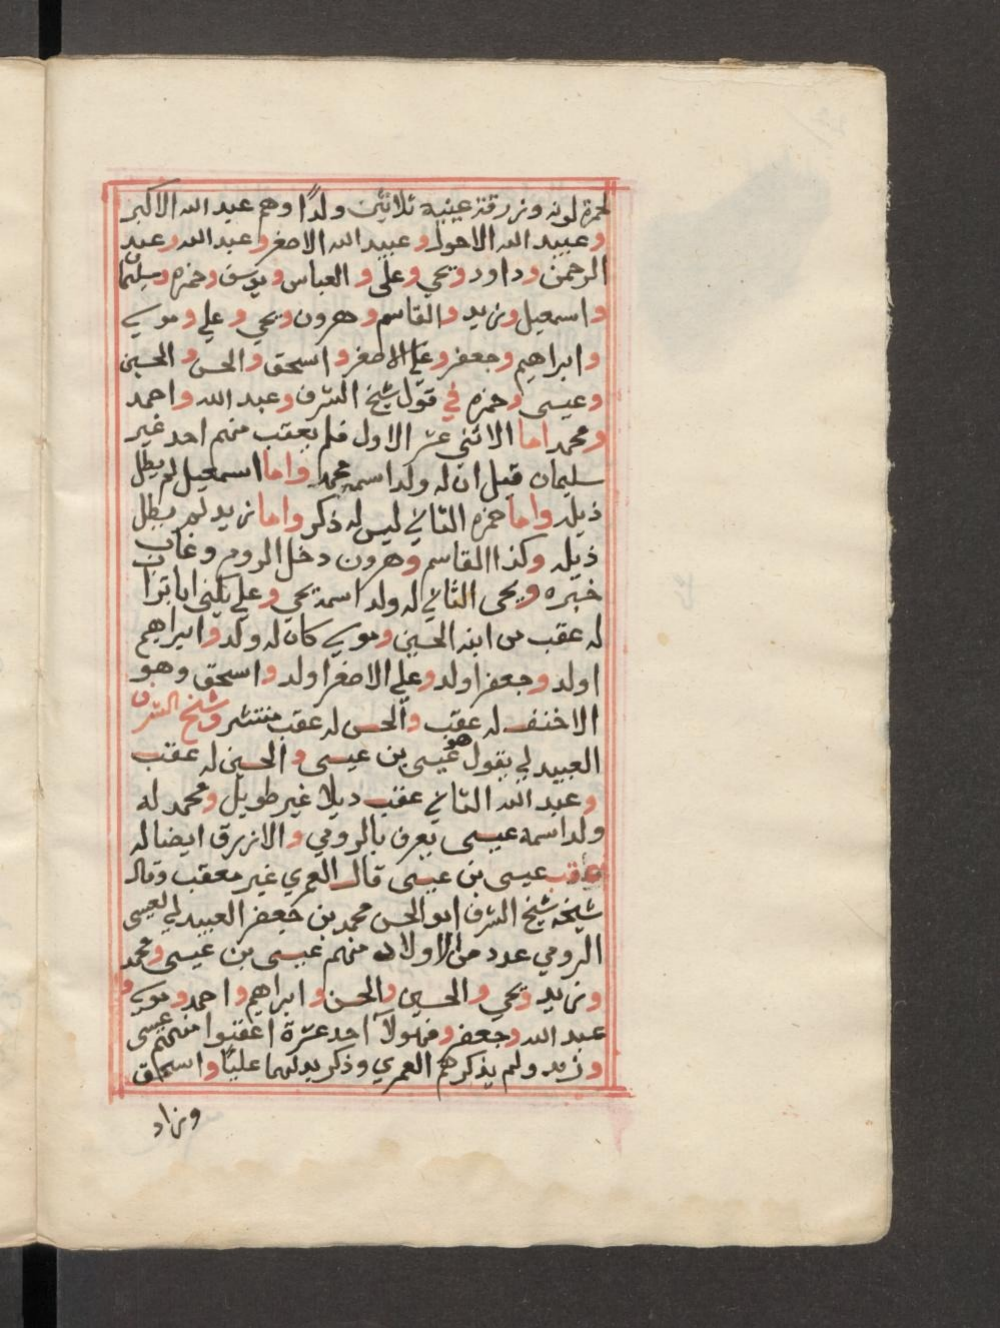 لحمرة لونه وزرقة عينيه ثلاثين ولدًا وهم عبد الله الاكبر
وعبيد الله الاحول وعبيد الله الاصغر وعبد الله وعبد
الرحمن وداود ويحي وعلى والعباس ويوسف وحمزه وسليمان
واسمعيل وزيد والقاسم وهرون ويحي وعلي وموسى
وابراهيم وجعفر وعلي الاصغر واسحق والحسن والحسين
وعيسى وحمزه في قول شيخ الشرف وعبد الله واحمد
ومحمد اما الاثنى عشر الاول فلم يعقب منهم احد غير
سليمان قيل ان له ولد اسمه محمد واما اسمعيل لم يطل
ذيله واما حمزه الثاني ليس له ذكر واما زيد لم يطل
ذيله وكذا القاسم وهرون دخل الروم وغاب
خبره ويحى الثاني له ولد اسمه يحي وعلي يكنى ابا تراب
له عقب من ابنه الحسين وموسى كان له ولد وابراهيم
اولد وجعفر اولد وعلي الاصغر اولد واسحق وهو
الاخنف له عقب والحسن له عقب منتشر وشيخ الشرف
العبيدلي يقول هو عيسى بن عيسى والحسين له عقب
وعبد الله الثاني عقب ديلا غير طويل ومحمد له
ولد اسمه عيسى يعرف بالرومي والازرق ايضا له
عقب عيسى بن عيسى قال العمري غير معقب وقال
شيخه شيخ الشرف ابو الحسن محمد بن جعفر العبيدلي لعيسى
الرومي عدد من الاولاد منهم عيسى بن عيسى ومحمد
وزيد ويحي والحسين والحسن وابراهيم واحمد وموسى و
عبد الله وجعفر فهولآ احد عشرة اعقبوا منهم عيسى
وزيد ولم يذكرهم العمري وذكر بدلهما عليًا واسحاق
وزاد